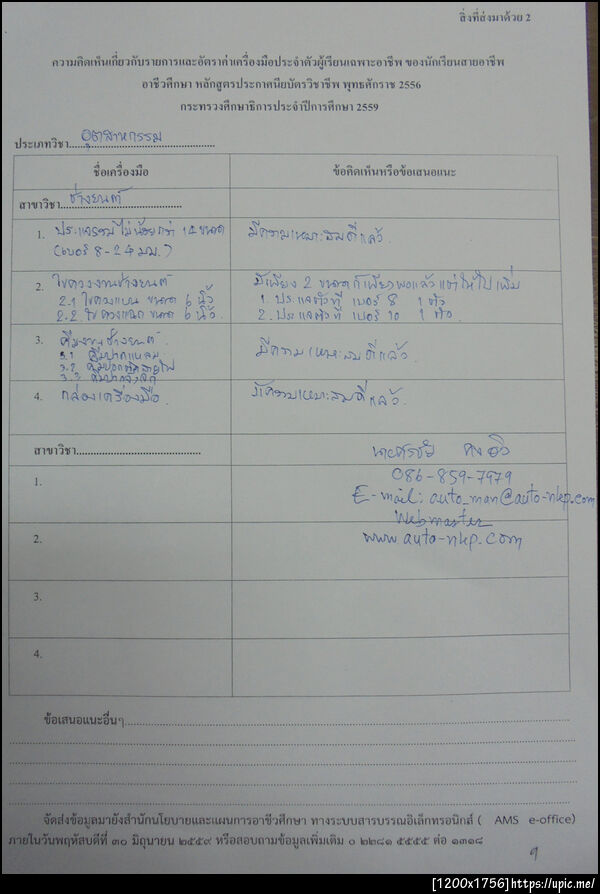 สิ่งที่ส่งมาด้วย 2
ความคิดเห็นเกี่ยวกับรายการและอัตราค่าเครื่องมือประจำตัวผู้เรียนเฉพาะอาชีพ ของนักเรียนสายอาชีพ
อาชีวศึกษา หลักสูตรประกาศนียบัตรวิชาชีพ พุทธศักราช 2556
กระทรวงศึกษาธิการประจำปีการศึกษา 2559
ประเภทวิชา อุตสาหกรรม
ชื่อเครื่องมือ ข้อคิดเห็นหรือข้อเสนอแนะ
สาขาวิชา ช่างยนต์
1. ประแจรวมไม่น้อยกว่า 14 ขนาด มีความเหมาะสมดีแล้ว
(เบอร์ 8-24 มม.)
2. ไขควงงานช่างยนต์ มีเพียง 2 ขนาดก็เพียงพอแล้วแต่ให้ไปเพิ่ม
2.1 ไขควงแบน ขนาด 6 นิ้ว 1. ประแจตัวที เบอร์ 8 1 ตัว
2.2 ไขควงแฉก ขนาด 6 นิ้ว 2. ประแจตัวที เบอร์ 10 1 ตัว
3. คีมงานช่างยนต์ มีความเหมาะสมดีแล้ว
3.1 คีมปากแหลม
3.2 คีมปอกตัดสายไฟ
3.3 คีมปาก
4. กล่องเครื่องมือ มีความเหมาะสมดีแล้ว
สาขาวิชา
นาย
1. 086-859-7979
E-mail: auto_man@auto-nkp.com
Webmaster
2. www.auto-nkp.com
3.
4.
ข้อเสนอแนะอื่นๆ
จัดส่งข้อมูลมายังสำนักนโยบายและแผนการอาชีวศึกษา ทางระบบสารบรรณอิเล็กทรอนิกส์ ( AMS e-office)
ภายในวันพฤหัสบดีที่ ๓๐ มิถุนายน ๒๕๕๙ หรือสอบถามข้อมูลเพิ่มเติม ๐ ๒๒๘๑ ๕๕๕๕ ต่อ ๑๓๑๘
[1200x1756]https://upic.me/